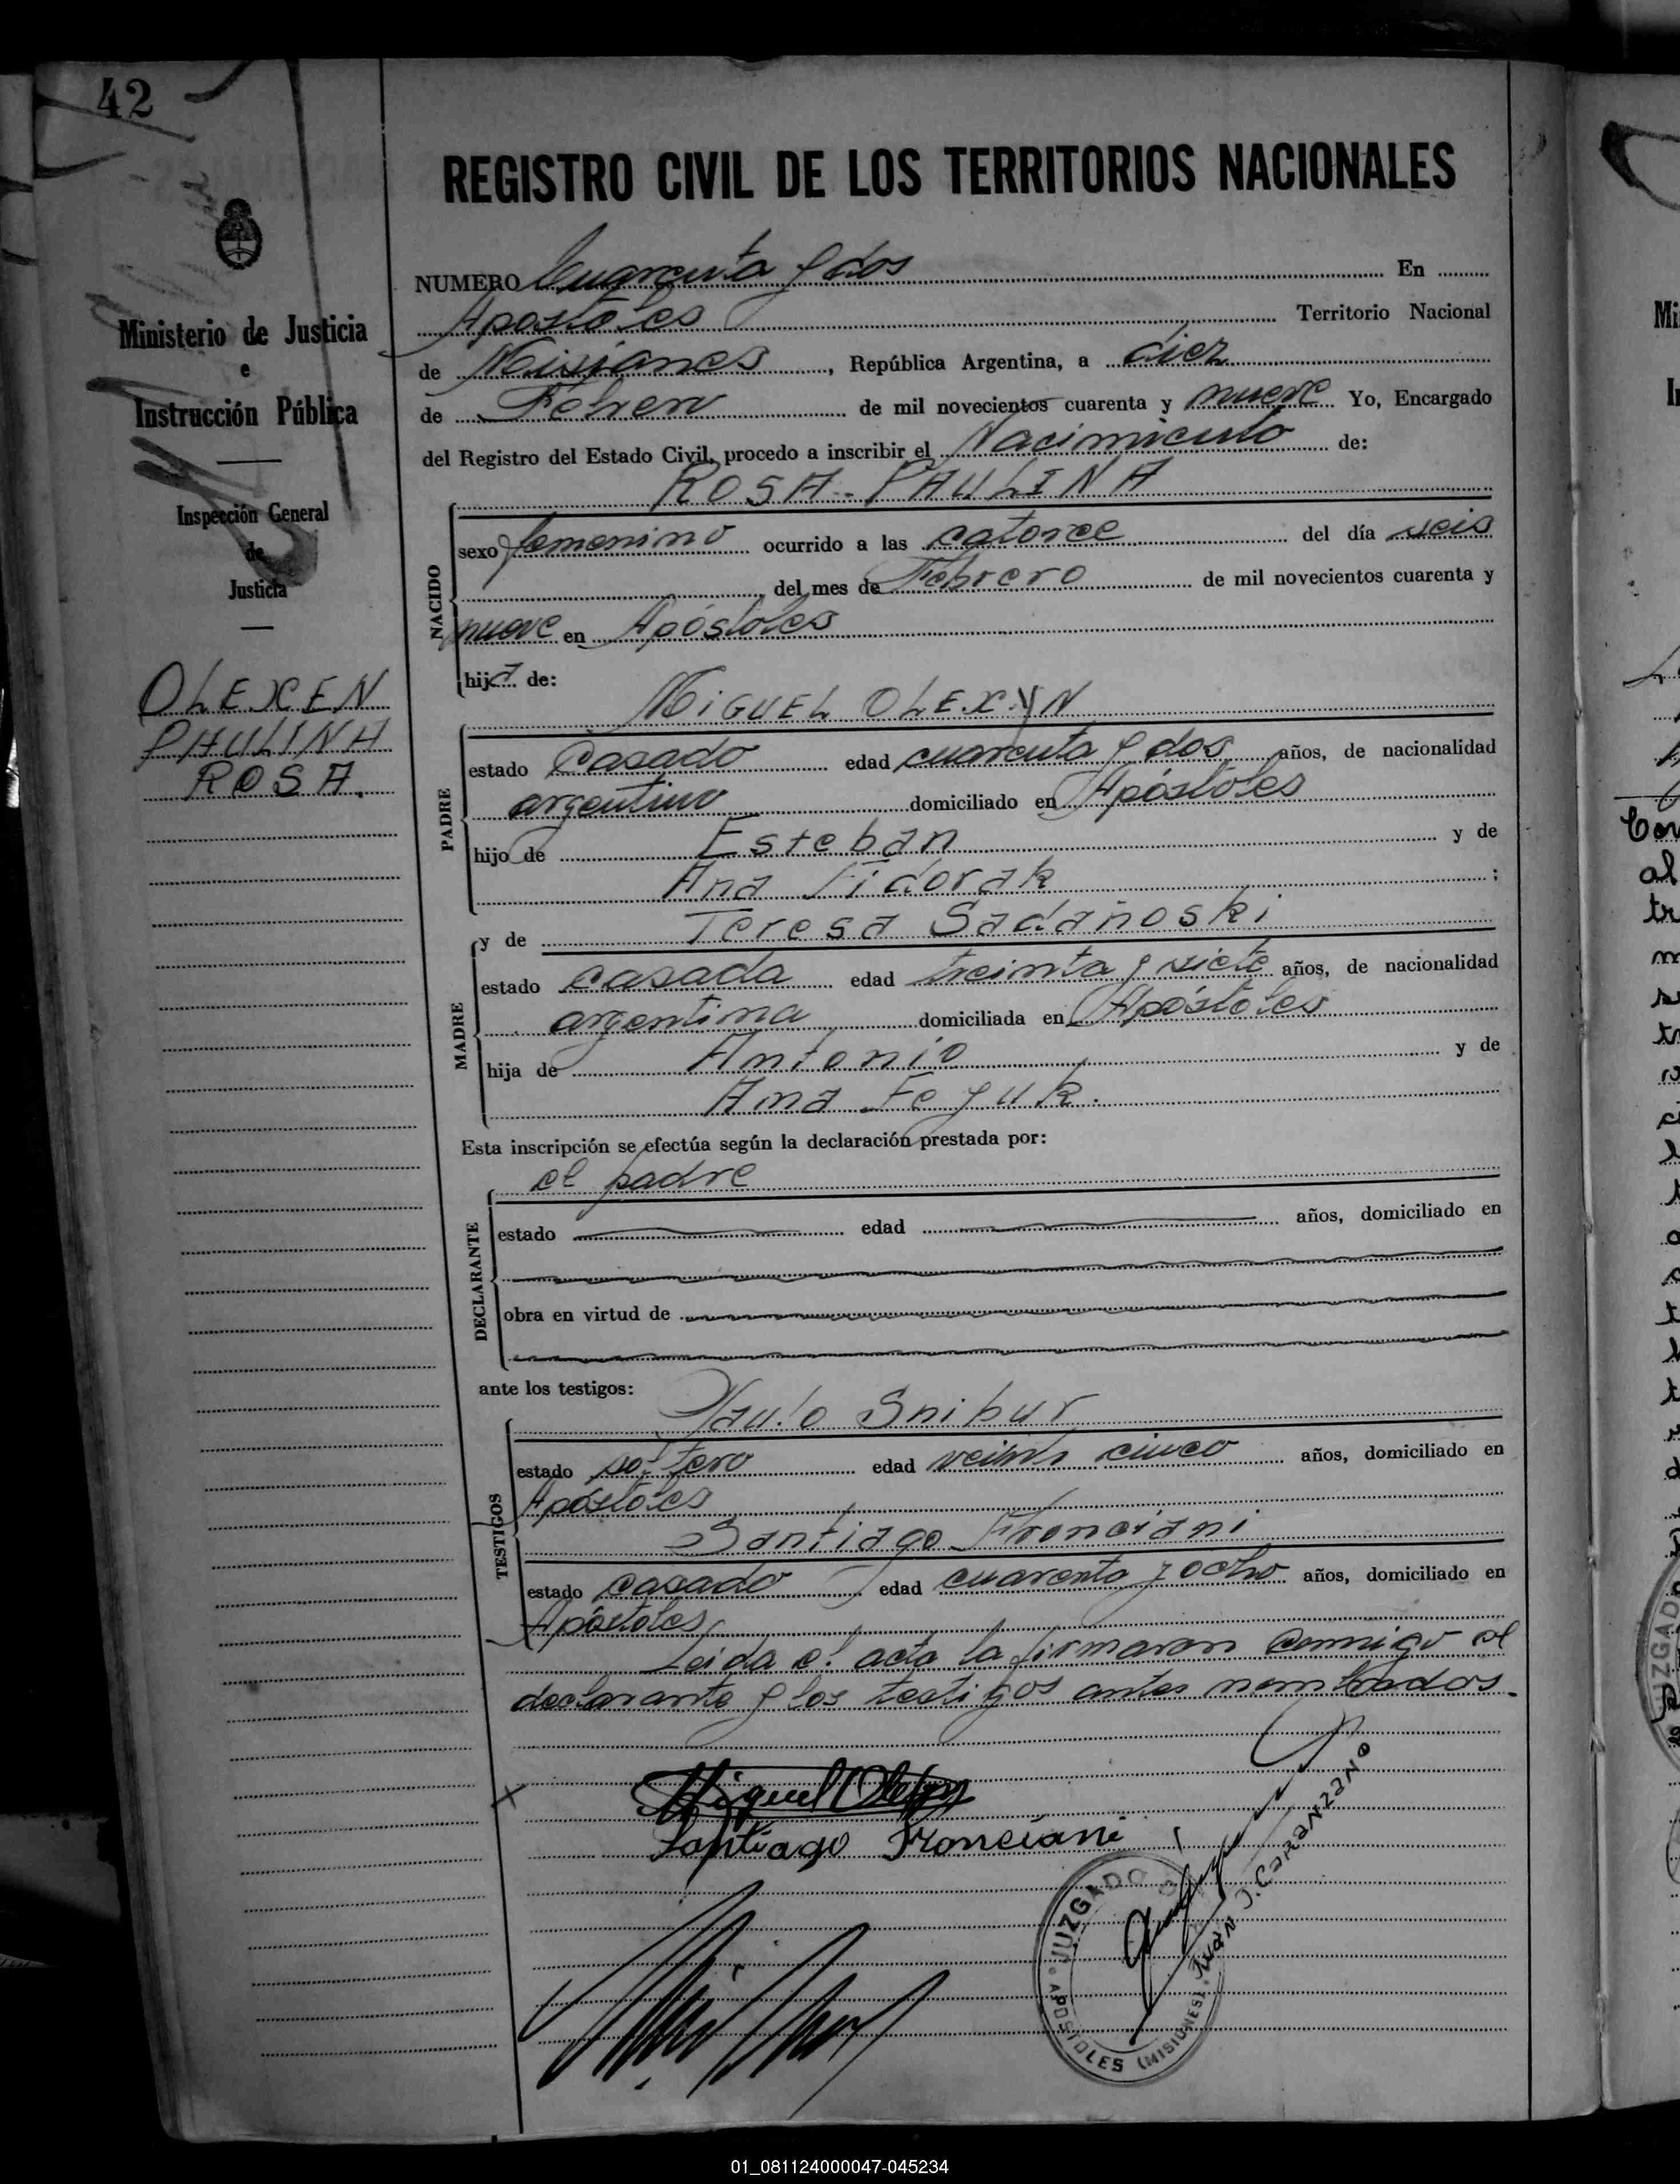 42
REGISTRO CIVIL DE LOS TERRITORIOS NACIONALES
NUMERO Cuarenta y dos En
Apostoles Territorio Nacional
de Misiones, República Argentina, a diez
de Febrero de mil novecientos cuarenta y nueve Yo, Encargado
del Registro del Estado Civil, procedo a inscribir el Nacimiento de:
ROSA-PAULINA
Ministerio de Justicia
e
Instrucción Pública
Inspección General
de
Justicia
OLEXEN
PAULINA
ROSA.
NACIDO
sexo femenino ocurrido a las catorce del día seis
del mes de Febrero de mil novecientos cuarenta y
nueve en Apóstoles
hija de:
MIGUEL OLEXYN
PADRE
estado Casado edad cuarenta y dos años, de nacionalidad
argentino domiciliado en Apóstoles
hijo de Esteban y de
Ana Fidorak ;
y de Teresa Sadañoski
MADRE
estado casada edad treinta y siete años, de nacionalidad
argentina domiciliada en Apóstoles
hija de Antonio y de
Ana Feyuk.
Esta inscripción se efectúa según la declaración prestada por:
el padre
DECLARANTE
estado edad años, domiciliado en
obra en virtud de
ante los testigos:
Paulo Snihur
TESTIGOS
estado soltero edad veinti cinco años, domiciliado en
Apóstoles
Santiago Fronciani
estado casado edad cuarenta y ocho años, domiciliado en
Apóstoles
Leida el acta la firmaron conmigo el
declarante y los testigos antes nombrados.
Miguel Olexyn
Santiago Fronciani
JUZGADO
APOSTOLES (MISIONES)
JUAN J. CARANZANO
01_081124000047-045234